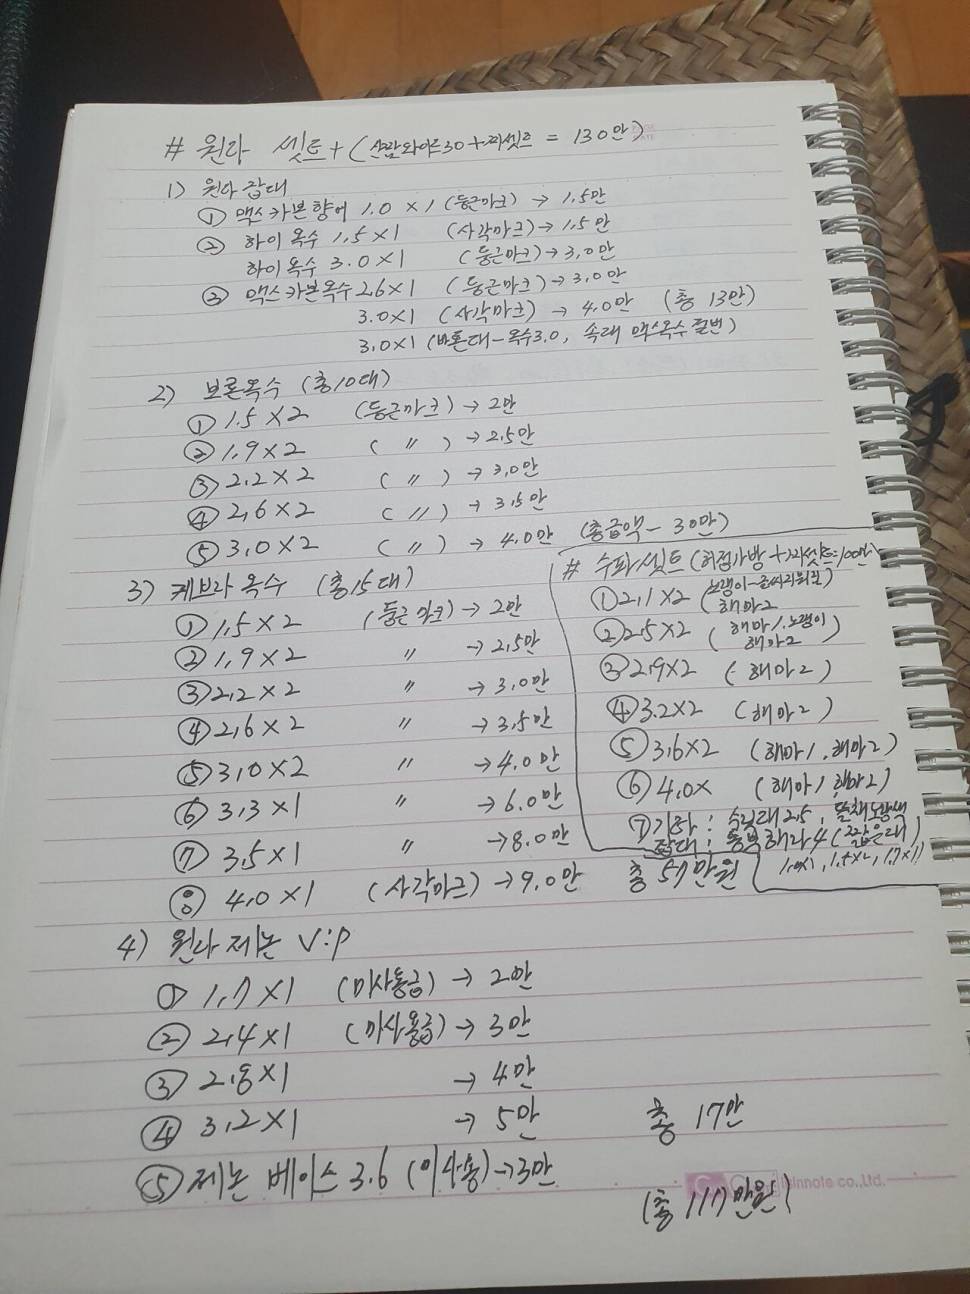 # 원다 셋트+( 30+ 셋트 = 130만)
1) 원다 잡대
① 맥스 카본 향어 1.0 × 1 (둥근마크) → 1.5만
② 하이 옥수 1.5×1 (사각마크)→ 1.5만
하이 옥수 3.0×1 (둥근마크)→ 3.0만
③ 맥스 카본옥수 2.6×1 (둥근마크)→3.0만
3.0×1 (사각마크) → 4.0만 (총 13만)
3.0×1 (바톤대-옥수3.0, 속대 맥스옥수 절번)
2) 보론옥수 (총10대)
① 1.5×2 (둥근마크)→ 2만
② 1.9×2 ( 〃 ) →2.5만
③ 2.2×2 ( 〃 ) →3.0만
④ 2.6×2 ( 〃 ) → 3.5만
⑤ 3.0×2 ( 〃 ) → 4.0만 (총금액- 30만)
3) 케브라 옥수 (총15대)
① 1.5×2 (둥근마크)→ 2만
② 1.9×2 〃 →2.5만
③ 2.2×2 〃 → 3.0만
④ 2.6×2 〃 →3.5만
⑤ 3.0×2 〃 →4.0만
⑥ 3.3×1 〃 →6.0만
⑦ 3.5×1 〃 →8.0만
⑧ 4.0×1 (사각마크)→9.0만 총 57만원
# 수파셋트 ( 가방 + 셋트=100만)
① 2.1×2 (노랭이-
해마2
② 2.5×2 (해마1.노랭이
해마2 )
③ 2.9×2 (해마2)
④ 3.2×2 (해마2)
⑤ 3.6×2 (해마1.해마2)
⑥ 4.0× (해마1 해마2)
⑦ 기타: 2.5, 뜰채노랑색
잡대: 4 (짧은대)
1.0×1, 1.5×2, 1.7×1)
4) 원다 제논 V.I.P
① 1.7×1 (미사용급) → 2만
② 2.4×1 (미사용급) → 3만
③ 2.8×1 → 4만
④ 3.2×1 → 5만 총 17만
⑤ 제논 베이스 3.6 (미사용)→3만
innote co.,Ltd.
(총 117만원)